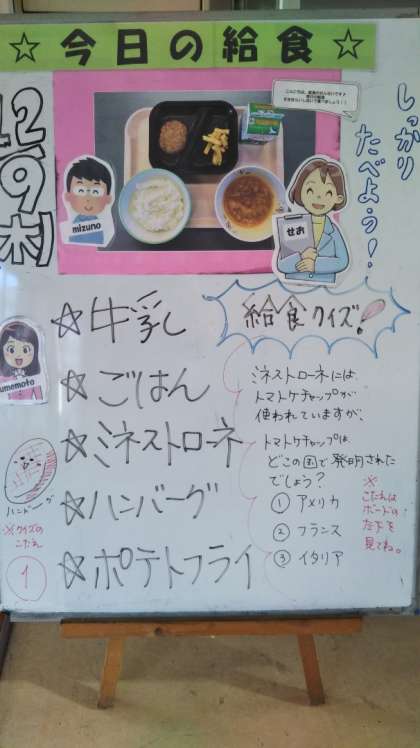 ☆今日の給食☆
12/9(木)
しっかり
たべよう!
mizuno
せお
umemoto
☆牛乳
☆ごはん
☆ミネストローネ
☆ハンバーグ
☆ポテトフライ
給食クイズ!
ミネストローネには、
トマトケチャップが
使われていますが、
トマトケチャップは、
どこの国で発明された
でしょう?
① アメリカ
② フランス
③ イタリア
※
こたえは
ボードの
左下を
見てね。
ハンバーグ
※クイズの
こたえ
1